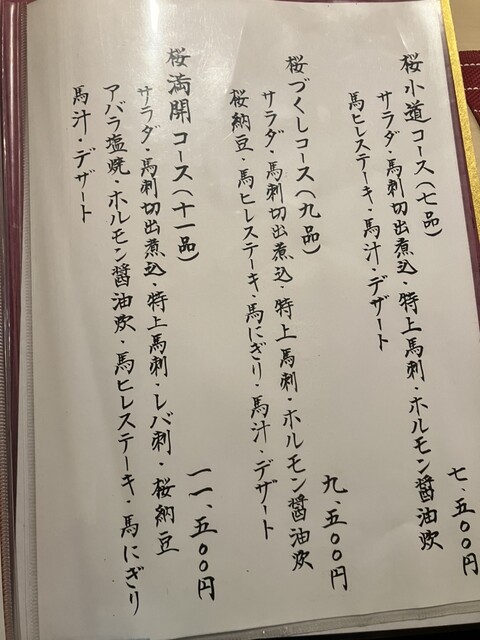 桜小道コース(七品)
サラダ・馬刺切出煮込・特上馬刺・ホルモン醤油炊
馬ヒレステーキ・馬汁・デザート
七、五〇〇円
桜づくしコース(九品)
サラダ・馬刺切出煮込・特上馬刺・ホルモン醤油炊
桜納豆・馬ヒレステーキ・馬にぎり・馬汁・デザート
九、五〇〇円
桜満開コース(十一品)
サラダ・馬刺切出煮込・特上馬刺・レバ刺・桜納豆
アバラ塩焼・ホルモン醤油炊・馬ヒレステーキ・馬にぎり
馬汁・デザート
一一、五〇〇円